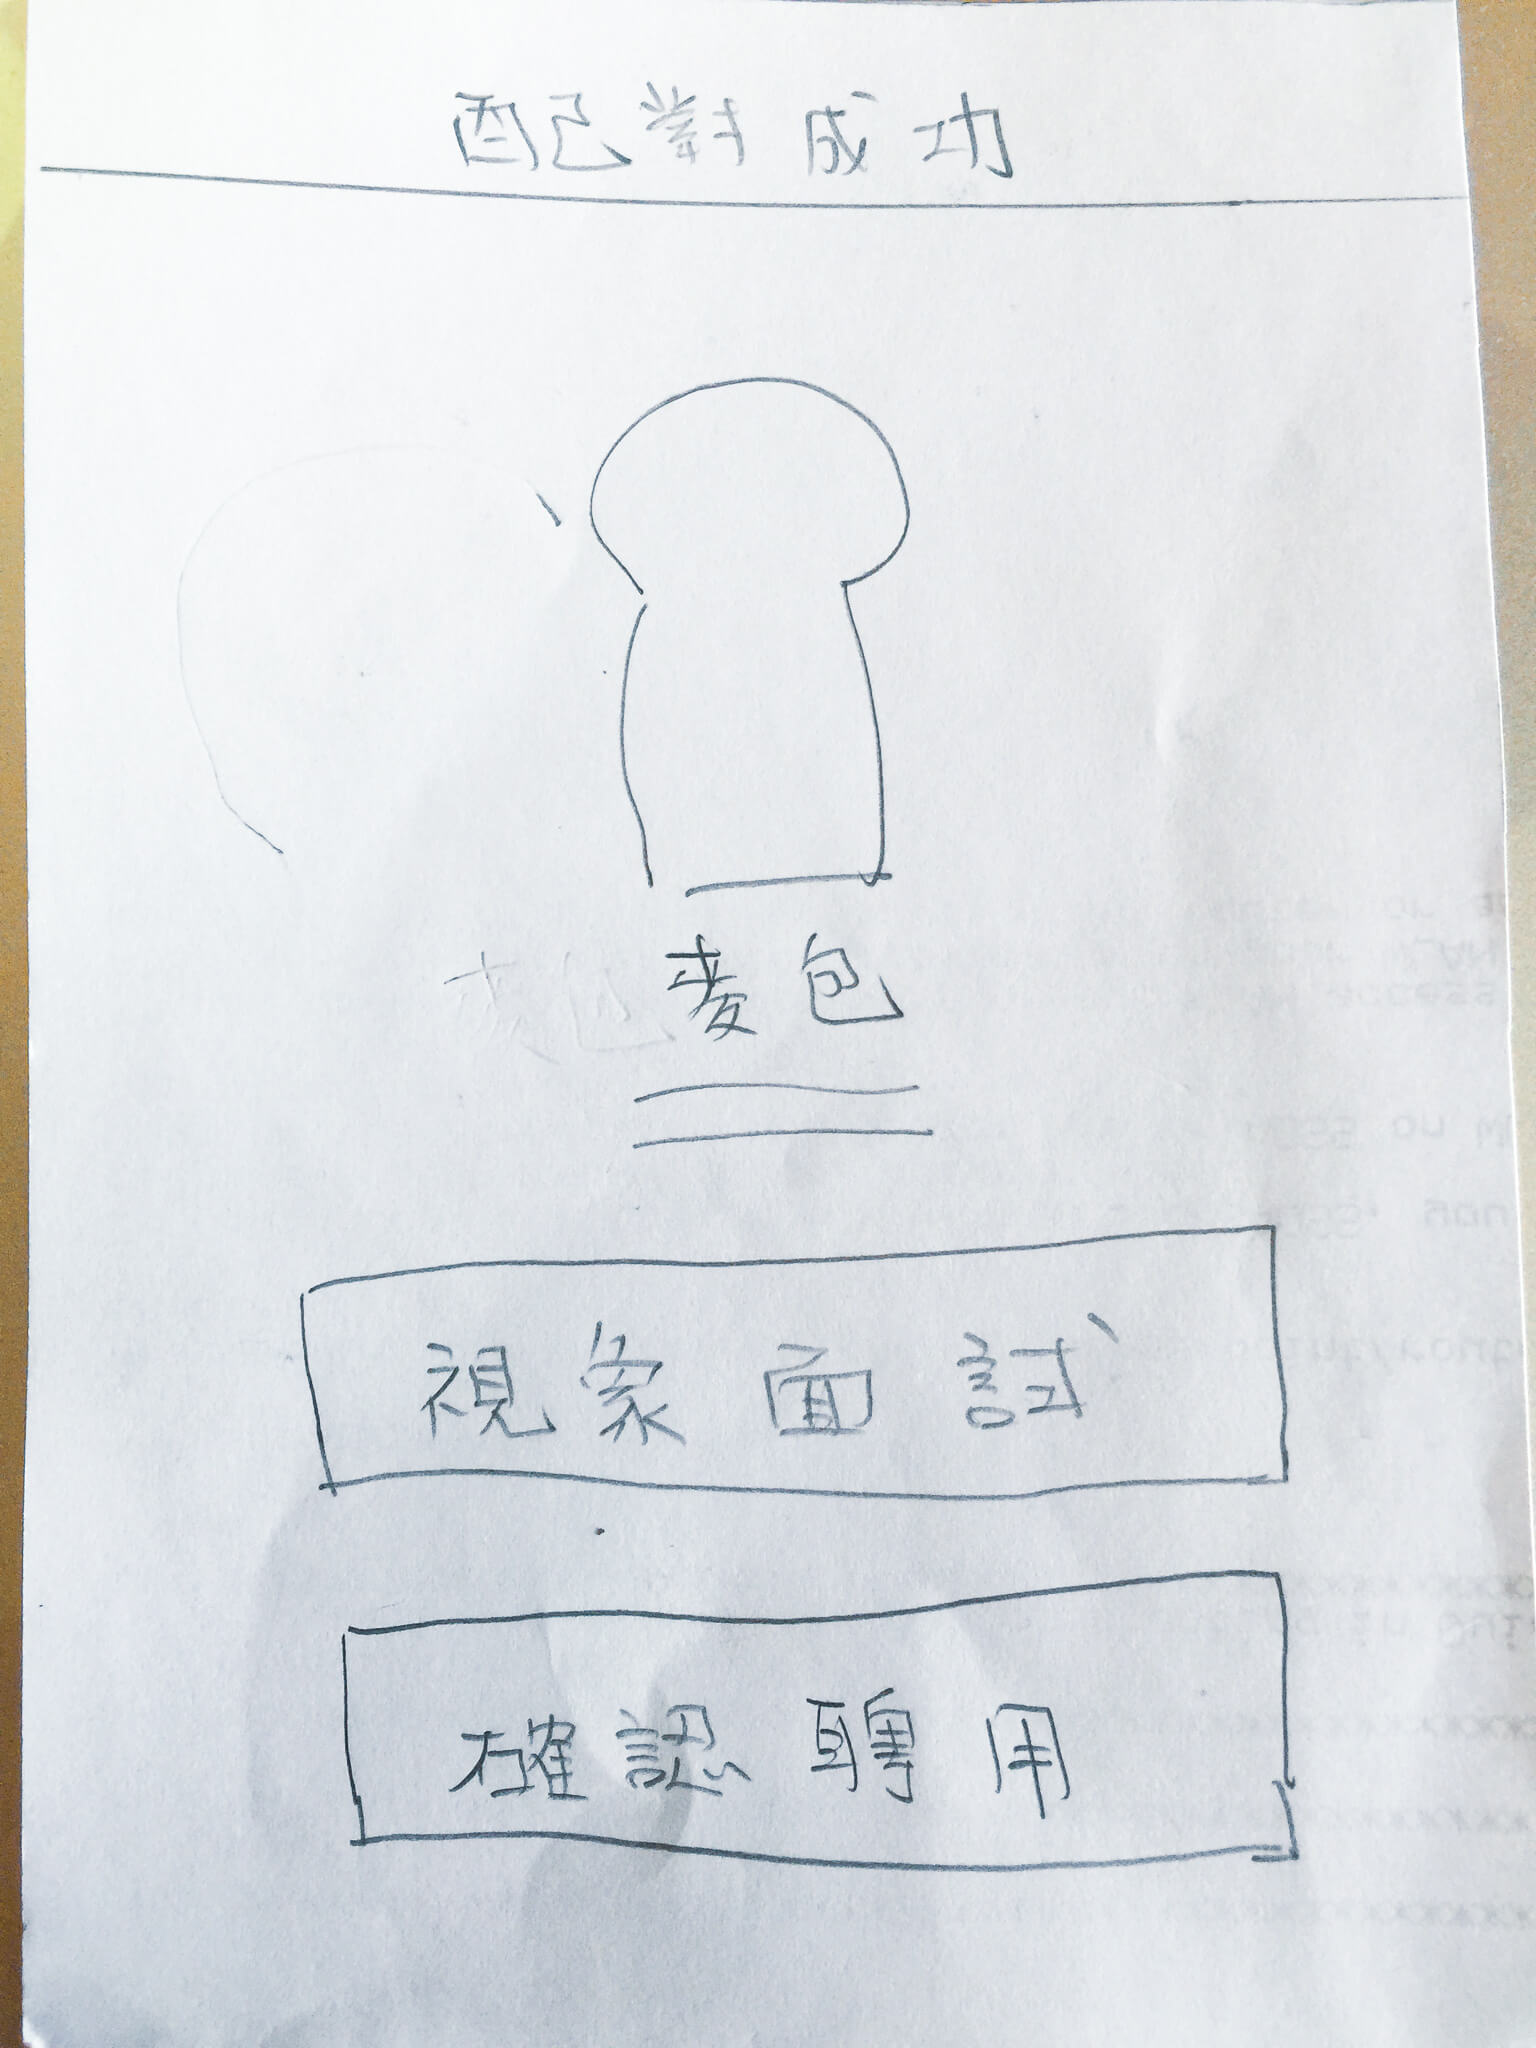 配對成功
麥包
視象面試
確認聘用